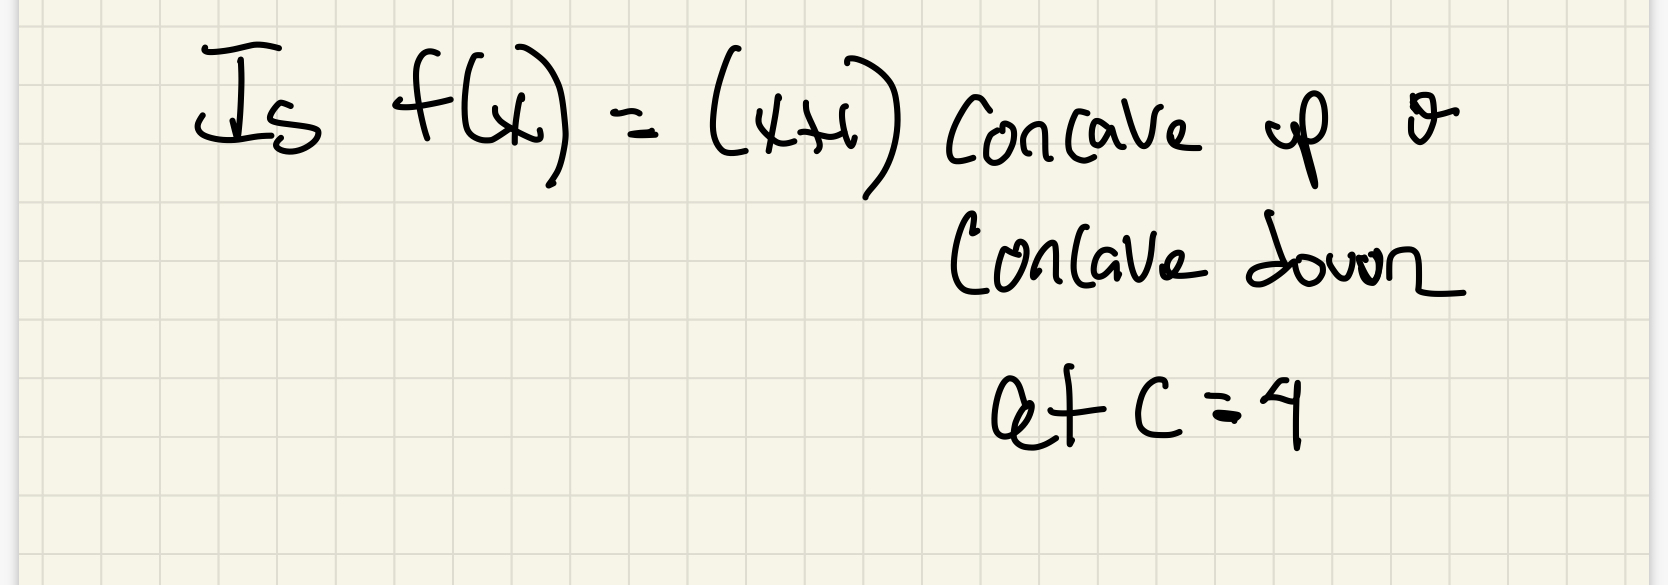 Is f(x) = (x+1) Concave up or
Concave down
at C = 4